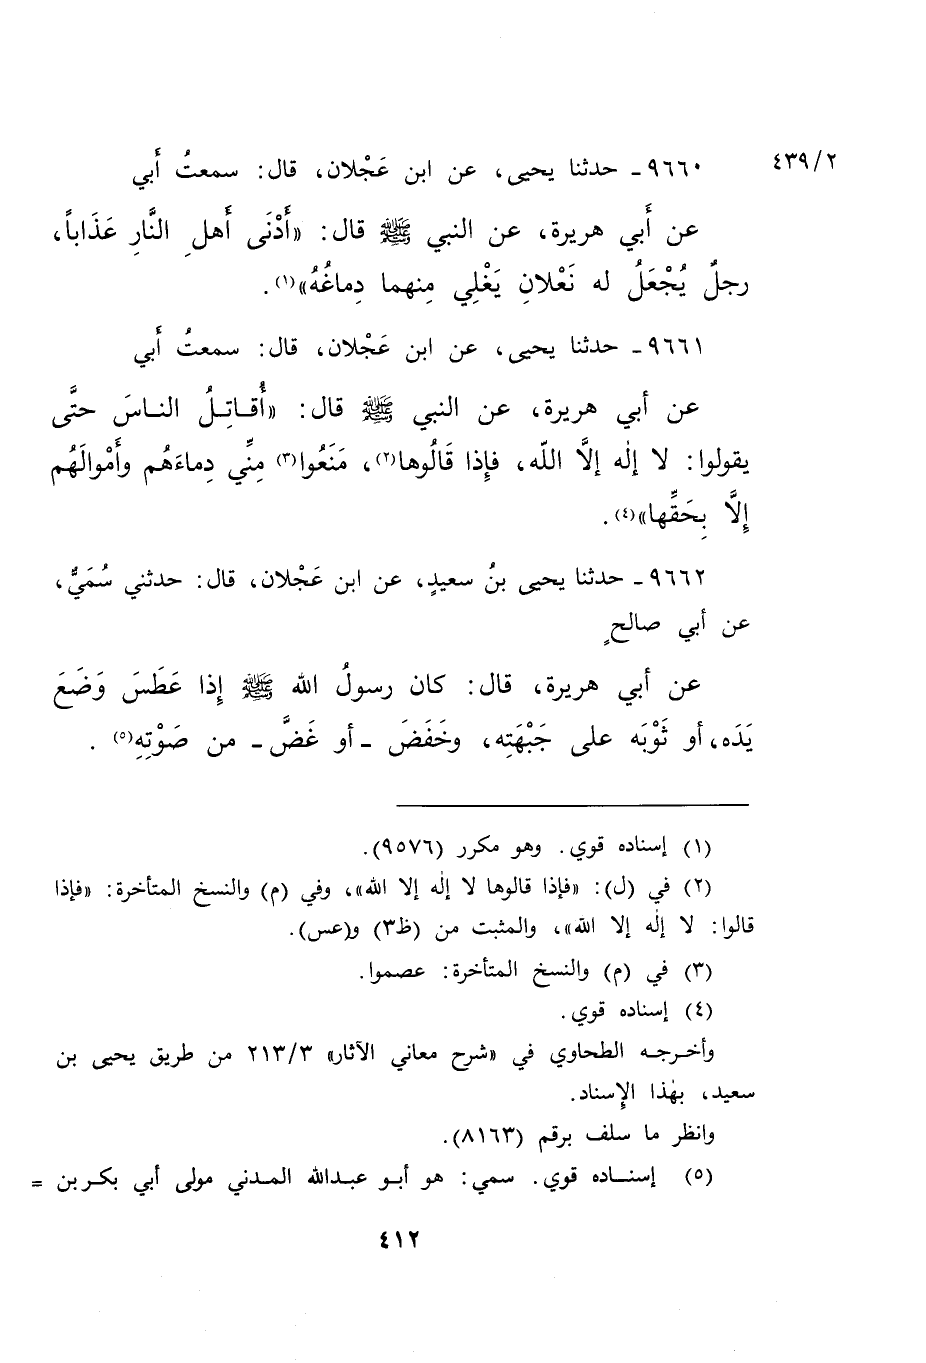 ٤٣٩/٢
٩٦٦٠ـ حدثنا يحيى، عن ابن عَجْلان، قال: سمعتُ أَبي
عن أَبي هريرة، عن النبي ﷺ قال: «أَدْنَى أَهلِ النَّارِ عَذَاباً،
رجلٌ يُجْعَلُ له نَعْلانِ يَغْلِي مِنهما دِماغُهُ»(١).
٩٦٦١ـ حدثنا يحيى، عن ابن عَجْلان، قال: سمعتُ أَبي
عن أبي هريرة، عن النبي ﷺ قال: «أُقاتِلُ الناسَ حتَّى
يقولوا: لا إلٰه إلَّا اللّه، فإِذا قَالُوها(٢)، مَنَعُوا(٣) مِنِّي دِماءَهُم وأَمْوالَهُم
إِلَّا بِحَقِّها»(٤).
٩٦٦٢ـ حدثنا يحيى بنُ سعيدٍ، عن ابن عَجْلان، قال: حدثني سُمَيٌّ،
عن أبي صالحٍ
عن أبي هريرة، قال: كان رسولُ الله ﷺ إِذا عَطَسَ وَضَعَ
يَدَه، أو ثَوْبَه على جَبْهَتِه، وخَفَضَ ـ أو غَضَّ ـ من صَوْتِهِ(٥) .
(١) إسناده قوي. وهو مكرر (٩٥٧٦).
(٢) في (ل): «فإذا قالوها لا إلٰه إلا الله»، وفي (م) والنسخ المتأخرة: «فإذا
قالوا: لا إلٰه إلا الله»، والمثبت من (ظ٣) و(عس).
(٣) في (م) والنسخ المتأخرة: عصموا.
(٤) إسناده قوي.
وأخرجه الطحاوي في «شرح معاني الآثار» ٢١٣/٣ من طريق يحيى بن
سعيد، بهٰذا الإسناد.
وانظر ما سلف برقم (٨١٦٣).
(٥) إسناده قوي. سمي: هو أبو عبدالله المدني مولى أبي بكر بن =
٤١٢